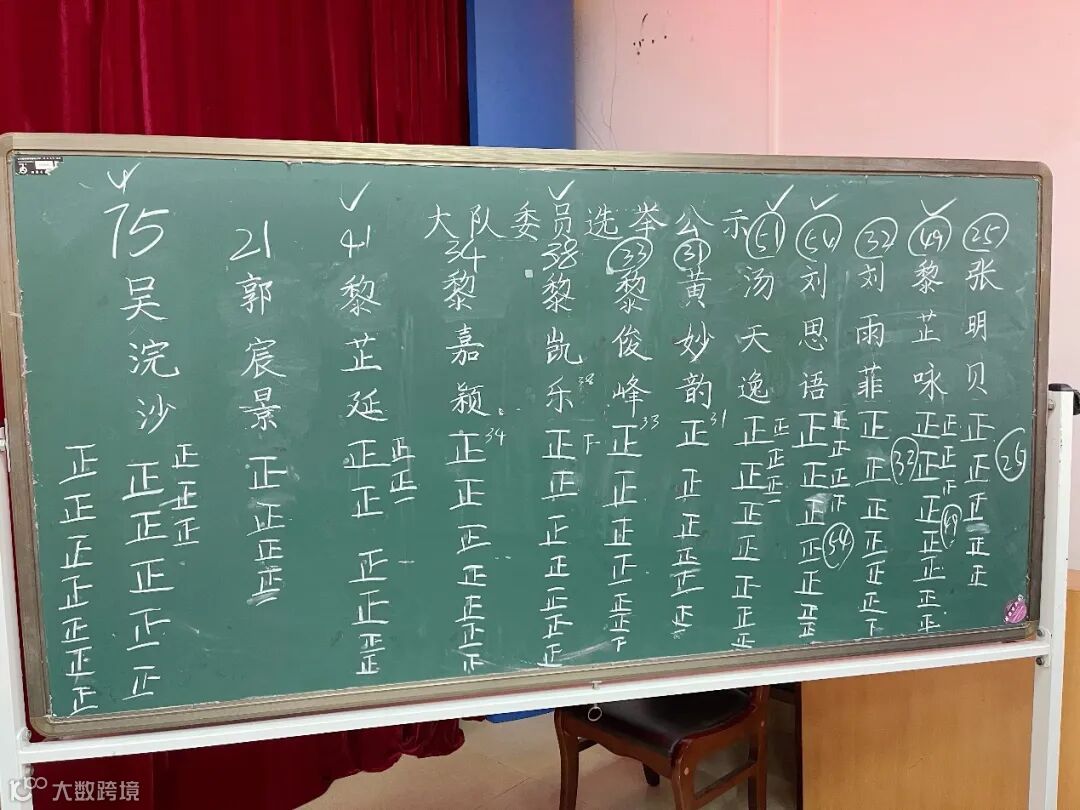 大队委员选举公示
75
吴浣沙
正正正正正正正
正正正正正
正正正
21
郭宸景
正正正正
41
黎芷延
正正正正正正
正正
34
黎嘉颖
34
正正正正正正正
38
黎凯乐
38
正正正正正正正
33
黎俊峰
33
正正正正正正
31
黄妙韵
31
正正正正正正
51
汤天逸
正正正正正正正
正正正
54
刘思语
正正正正正正正
正正正正
54
32
刘雨菲
正正正正正正
32
49
黎芷咏
正正正正正正正
正正正
49
25
张明贝
正正正正正
25
大数跨境